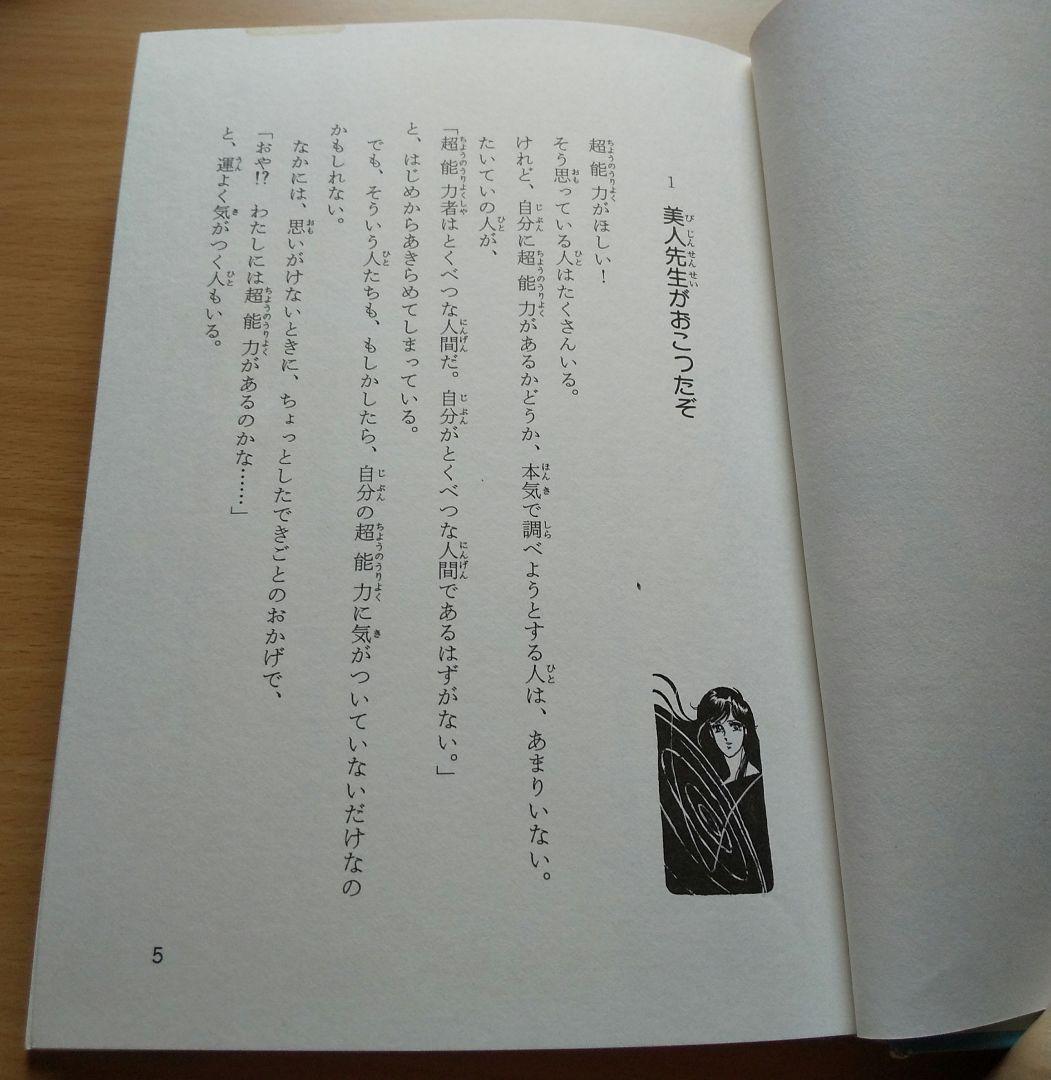 1 美人先生がおこったぞ
超能力がほしい！
そう思っている人はたくさんいる。
けれど、自分に超能力があるかどうか、本気で調べようとする人は、あまりいない。
たいていの人が、
「超能力者はとくべつな人間だ。自分がとくべつな人間であるはずがない。」
と、はじめからあきらめてしまっている。
でも、そういう人たちも、もしかしたら、自分の超能力に気がついていないだけなの
かもしれない。
なかには、思いがけないときに、ちょっとしたできごとのおかげで、
「おや!? わたしには超能力があるのかな……」
と、運よく気がつく人もいる。
5